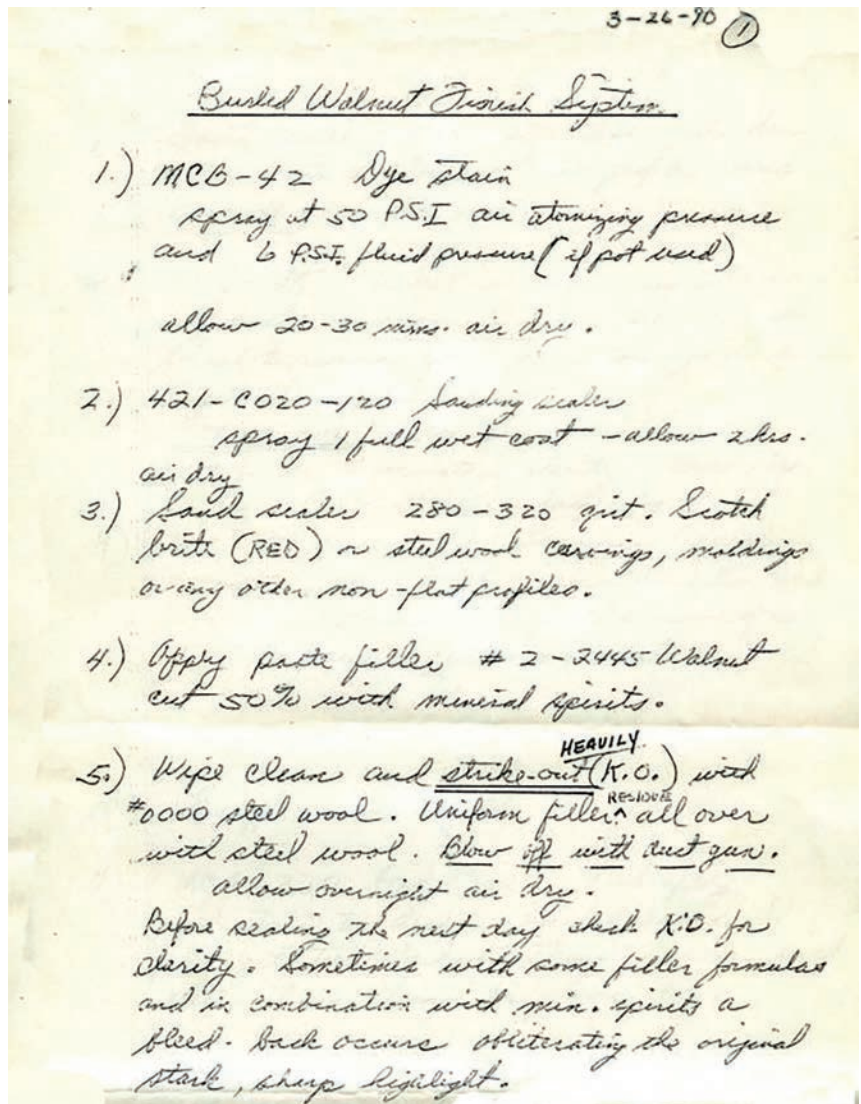 3-26-90 1
Burled Walnut Finish System
1.) MCB-42 Dye stain
spray at 50 P.S.I air atomizing pressure
and 6 P.S.I. fluid pressure (if pot used)
allow 20-30 mins. air dry.
2.) 421-C020-120 Sanding sealer
spray 1 full wet coat - allow 2 hrs.
air dry
3.) Sand sealer 280-320 grit. Scotch
brite (RED) or steel wool carvings, moldings
or any other non-flat profiles.
4.) Apply paste filler # 2-2445 Walnut
cut 50% with mineral spirits.
HEAVILY
5.) Wipe clean and strike-out (K.O.) with
RESIDUE
#0000 steel wool. Uniform filler ^ all over
with steel wool. Blow off with dust gun.
allow overnight air dry.
Before sealing the next day check K.O. for
clarity. Sometimes with some filler formulas
and in combination with min. spirits a
bleed-back occurs obliterating the original
stark, sharp highlight.